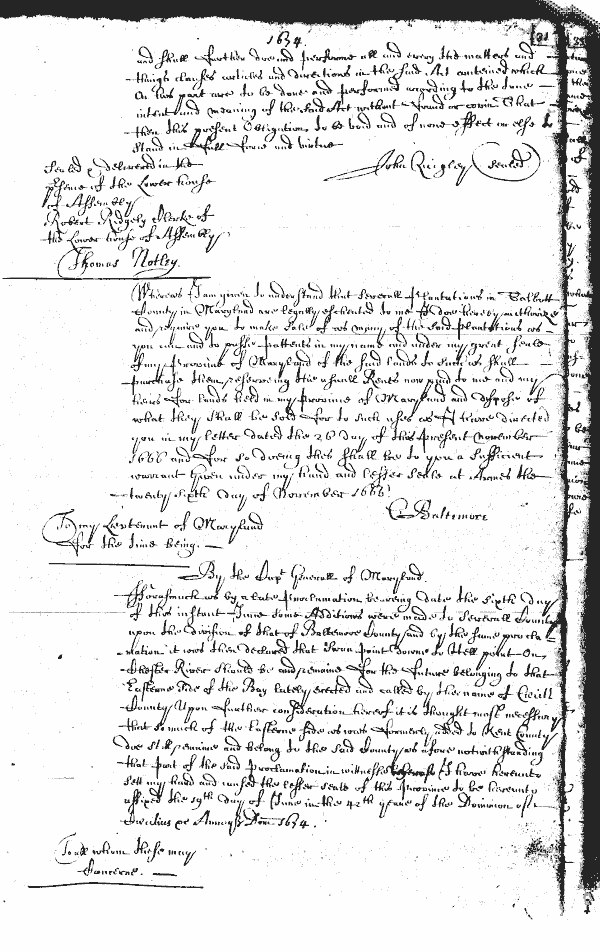 1674.
31
and shall further doe and performe all and every the matters and
things clauses articles and directions in the said Act contained which
on his part are to be done and performed according to the true
intent and meaning of the said Act without fraud or covin That
then this present Obligation to be void and of none effect or else to
stand in full force and virtue
John Quigley (sealed)
Sealed & delivered in the
psence of the Lower house
of Assembly
Robert Ridgely Clerke of
the Lower house of Assembly
Thomas Notley.
Whereas I am given to understand that severall Plantations in Talbott
County in Maryland are legally escheated to me I doe hereby authorize
and require you to make sale of as many of the said plantations as
you can and to passe pattents in my name and under my great seale
of my Province of Maryland of the said lands to such as shall
purchase them, reserveing the usuall Rents now paid to me and my
heires for lands held in my province of Maryland and dispose of
what they shall be sold for to such uses as I have directed
you in my letter dated the 26 day of this present November
1666 and for so doeing this shall be to you a sufficient
warrant Given under my hand and lesser seale at the
twenty sixth day of November 1666
C Baltemore
To my Lieutenant of Maryland
for the time being. —
By the Capt Generall of Maryland.
Fforasmuch as by a late Proclamation beareing date the sixth day
of this instant June some Additions were made to severall County
upon the division of that of Baltemore County and by the same procla
mation it was then declared that from point downe to Hell point on
Chester River should be and remaine for the future belonging to that
Easterne side of the Bay lately erected and called by the name of Cecill
County Upon further consideration hereof it is thought most necessary
that so much of the Easterne side as was formerly added to Kent County
doe still remaine and belong to the said County as afore notwithstanding
that part of the said Proclamation in witnesse whereof I have hereunto
sett my hand and caused the lesser seale of this Province to be hereunto
affixed the 19th day of June in the 42th yeare of the Dominion of
Cecilius &c Annoq Dom 1674.
To all whom these may
Concerne. —